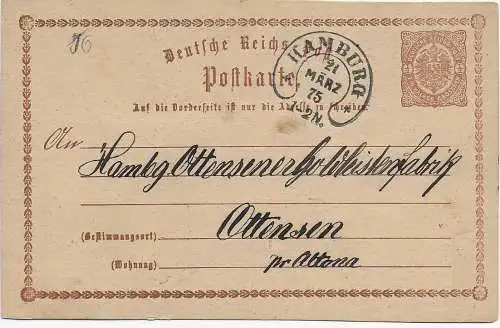 76
Deutsche Reichs-
Postkarte
HAMBURG
21
MÄRZ
75
1-2N.
Auf die Vorderseite ist nur die Adresse zu schreiben.
An Hambg Ottensener Goldleisten Fabrik
(Bestimmungsort) Ottensen
(Wohnung) pr Altona